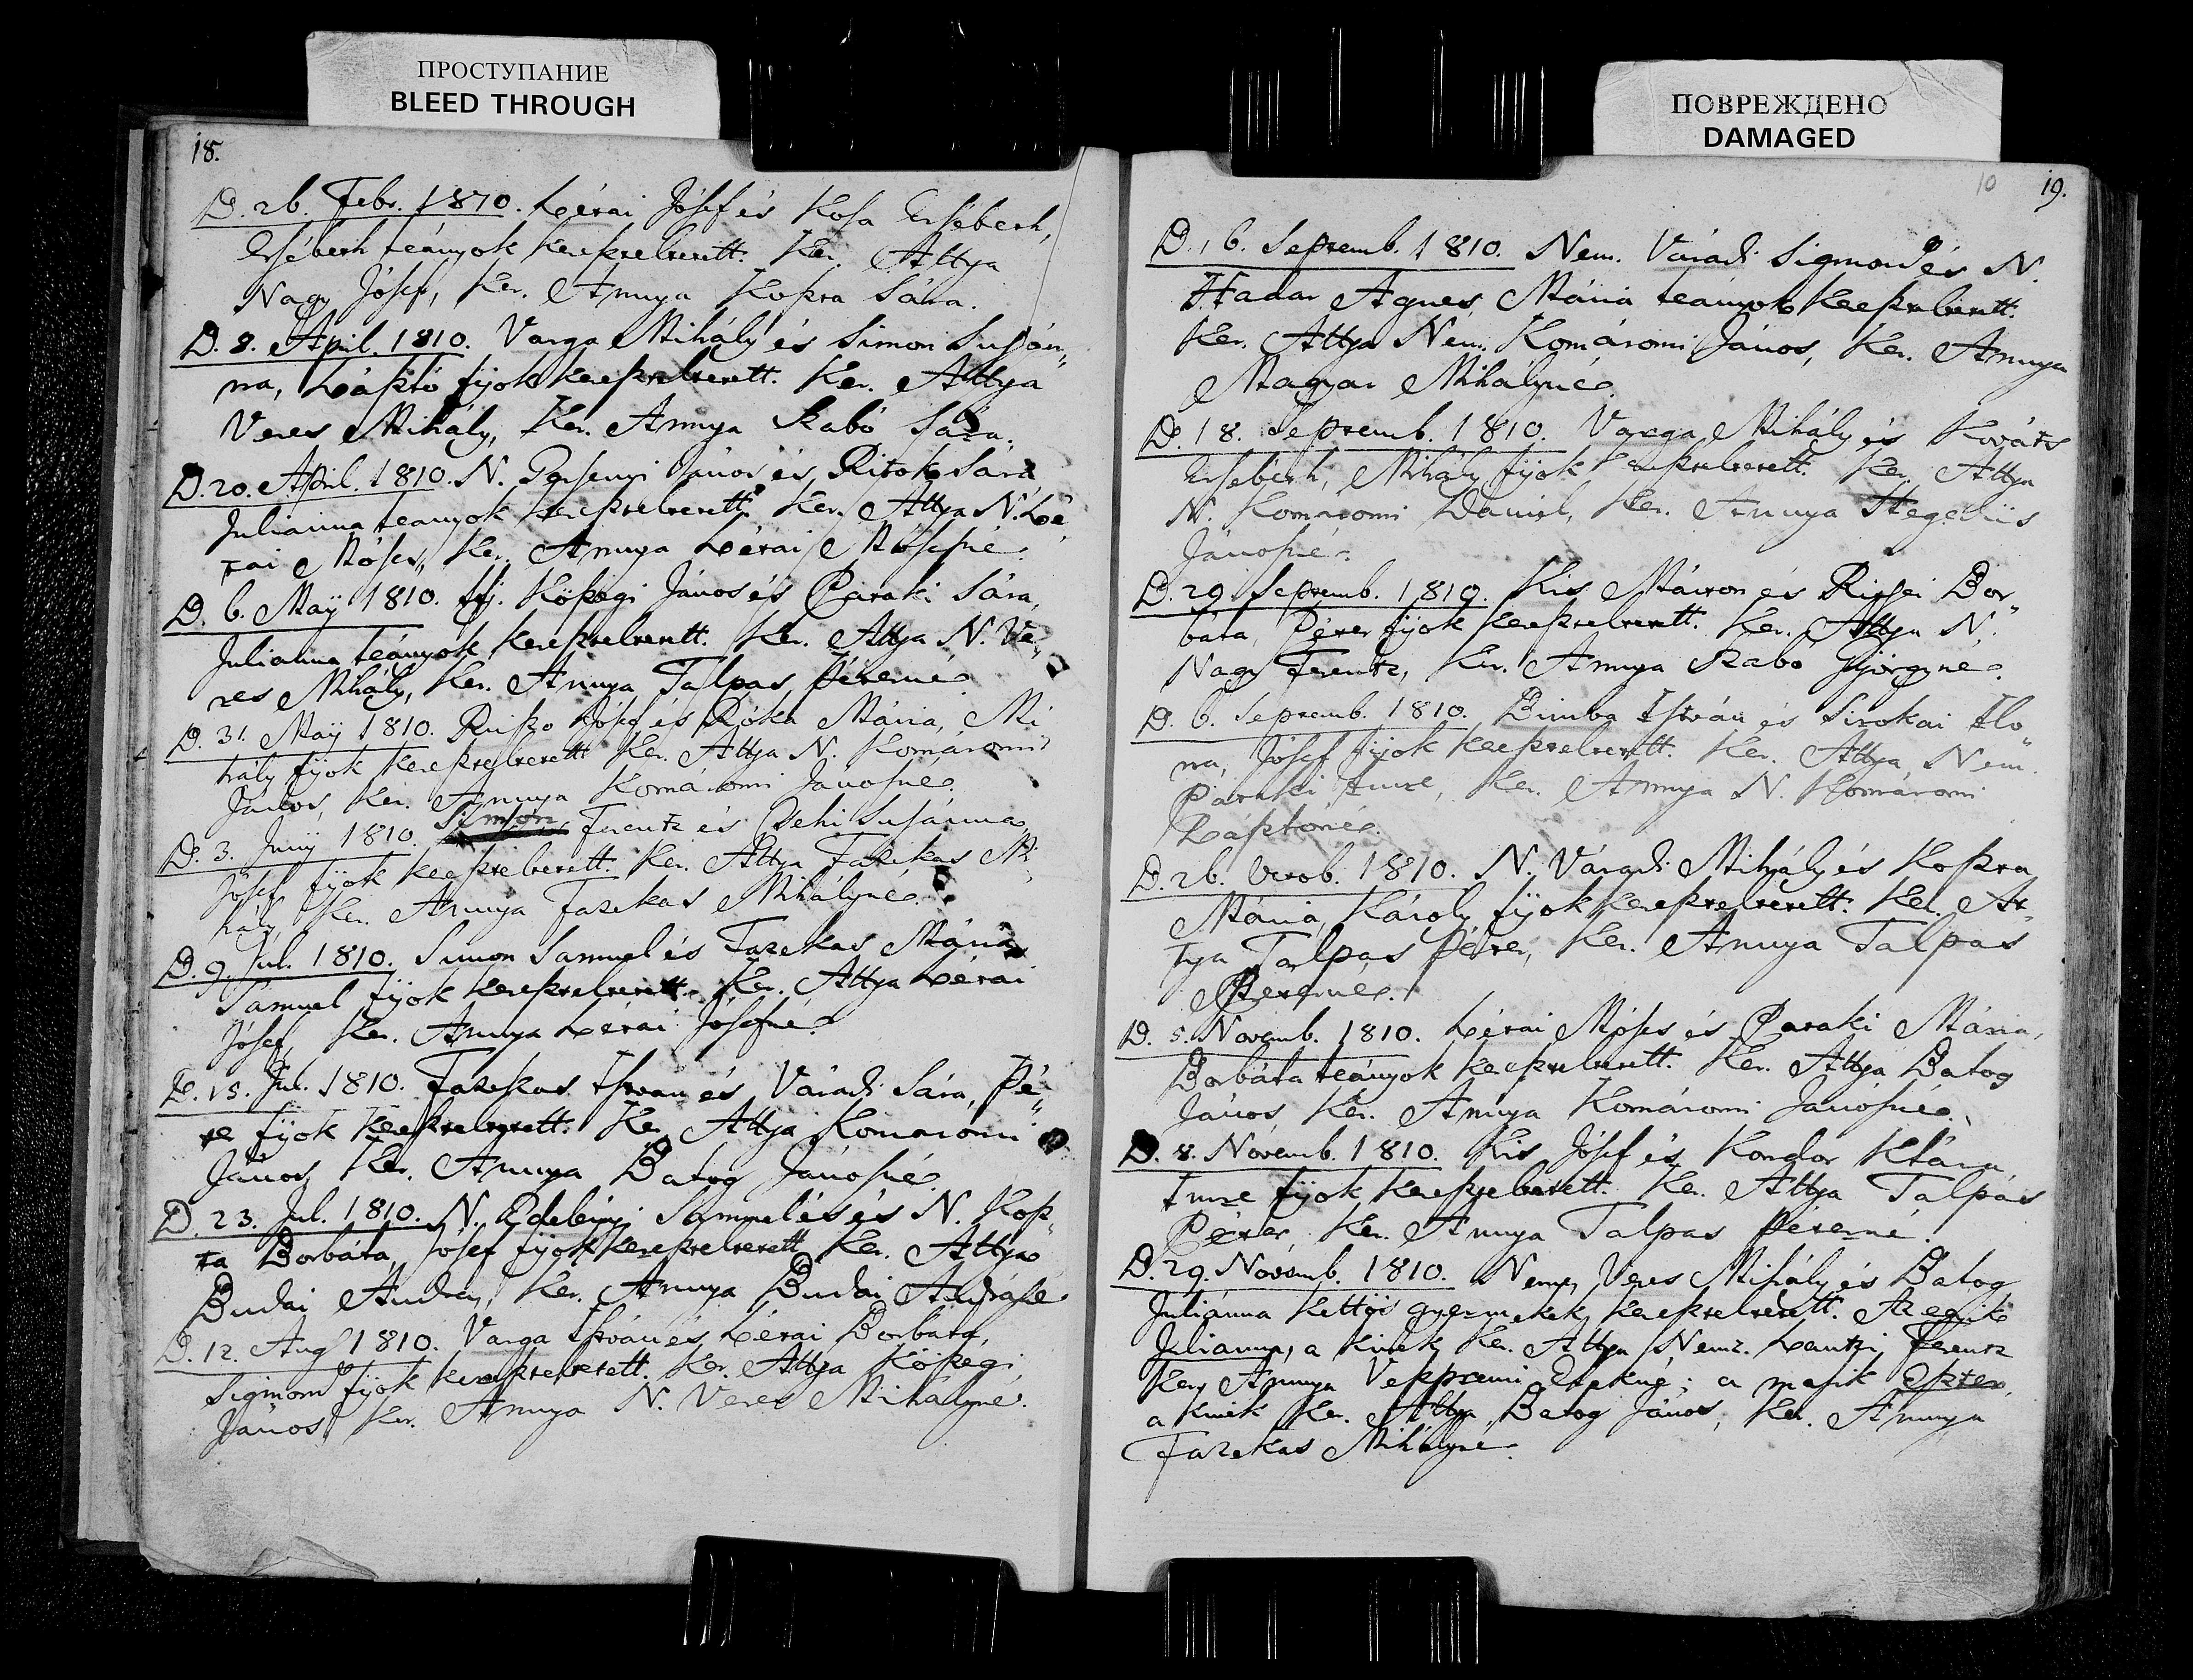 ПРОСТУПАНИЕ
BLEED THROUGH
18.
D. 26. Febr. 1810. Létai Jósef és Kosa Ersébeth,
Ersébeth leányok kereszteltetett. Ker. Attya
Nagy Jósef, Ker. Annya Koszta Sára.
D. 8. April. 1810. Varga Mihály és Simon Susán„
na, László fijok kereszteltetett. Ker. Attya
Veres Mihály, Ker. Annya Szabó Sára.
D. 20. April. 1810. N. János és Ritok Sára
Julianna leányok kereszteltetett. Ker. Attya N. Lé„
tai Móses, Ker. Annya Létai Mósesné.
D. 6. Maÿ 1810. Ifj. Köszegi János és Pataki Sára,
Julianna leányok kereszteltetett. Ker. Attya N. Ve„
res Mihály, Ker. Annya Talpas Péterné.
D. 31. Maÿ 1810. Ruszo Jósef és Róka Mária, Mi
hály fijok kereszteltetett Ker. Attya N. Komáromi
János, Ker. Annya Komáromi Jánosné.
D. 3. Junÿ 1810. Simon Ferentz és Pehi Susánna,
Jósef fijok kereszteltetett. Ker. Attya Fazekas Mi„
hály Ker. Annya Fazekas Mihályné.
D. 9. Jul. 1810. Simon Samuel és Fazekas Mária
Sámuel fijok kereszteltetett. Ker. Attya Létai
Jósef, Ker. Annya Létai Jósefné.
D. 15. Jul. 1810. Fazekas Istvan és Váradi Sára, Pé„
ter fijok kereszteltetett. Ker. Attya Komaromi
János, Ker. Annya Batog Jánosné.
D. 23. Jul. 1810. N. Edelényi Samuel és és N. Kosz„
ta Borbára, Jósef fijok kereszteltetett Ker. Attya
Budai András, Ker. Annya Budai Andrásné
D. 12. Aug 1810. Varga István és Létai Borbára,
Sigmond fijok kereszteltetett. Ker. Attya Köszegi
János, Ker. Annya N. Veres Mihályné.
ПОВРЕЖДЕНО
DAMAGED
10 19.
D. 16. Septemb. 1810. Nem. Váradi Sigmond és N.
Hadar Agnes, Mária leányok kereszteltetett.
Ker. Attya Nem. Komáromi János, Ker. Annya
Magyar Mihályné.
D. 18. Septemb. 1810. Varga Mihály és Kováts
Ersébeth, Mihály fijok kereszteltetett. Ker. Attya
N. Komaromi Daniel, Ker. Annya Hegedüs
Jánosné.
D. 29. Septemb. 1810. Kis Márton és Ritsei Bor„
bára, Péter fijok kereszteltetett. Ker. Attya N.
Nagy Ferentz, Ker. Annya Szabó Györgyné.
D. 6. Septemb. 1810. Bimba István és Sirokai Ilo„
na, Jósef fijok kereszteltetett. Ker. Attya Nem.
Pataki Imre, Ker. Annya N. Komáromi
Lászlóné.
D. 26. Octob. 1810. N. Váradi Mihály és Koszta
Mária, Károly fijok kereszteltetett. Ker. At„
tya Talpas Péter, Ker. Annya Talpas
Péterné.
D. 5. Novemb. 1810. Létai Móses és Pataki Mária,
Borbára leányok kereszteltetett. Ker. Attya Batog
János Ker. Annya Komáromi Jánosné.
D. 8. Novemb. 1810. Kis Jósef és Kondor Klára,
Imre fijok kereszteltetett. Ker. Attya Talpas
Péter, Ker. Annya Talpas Péterné.
D. 29. Novemb. 1810. Nemes Veres Mihály és Batog
Juliánna kettös gyermekek kereszteltetett. Az egyik
Julianna, a kinek Ker. Attya Nemz. Lentzi Ferentz
Ker. Annya Veszpremi; a másik Eszter,
a kinek Ker. Attya Batog János, Ker. Annya
Fazekas Mihályné.